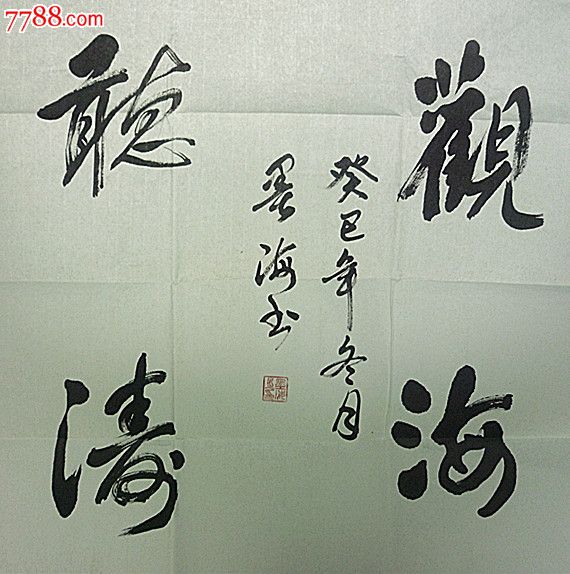 7788.com
觀海
癸巳年冬月
墨海书
聽濤